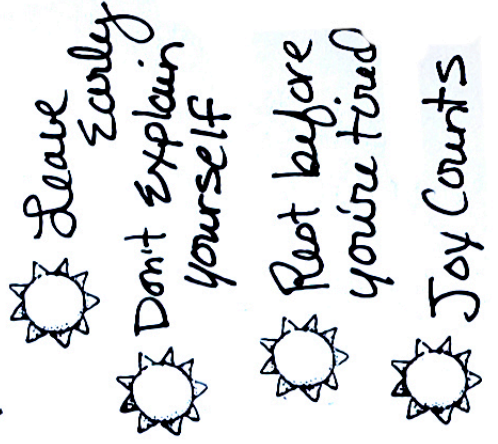 Leave
Early
Don't Explain
yourself
Rest before
you're tired
Joy Counts